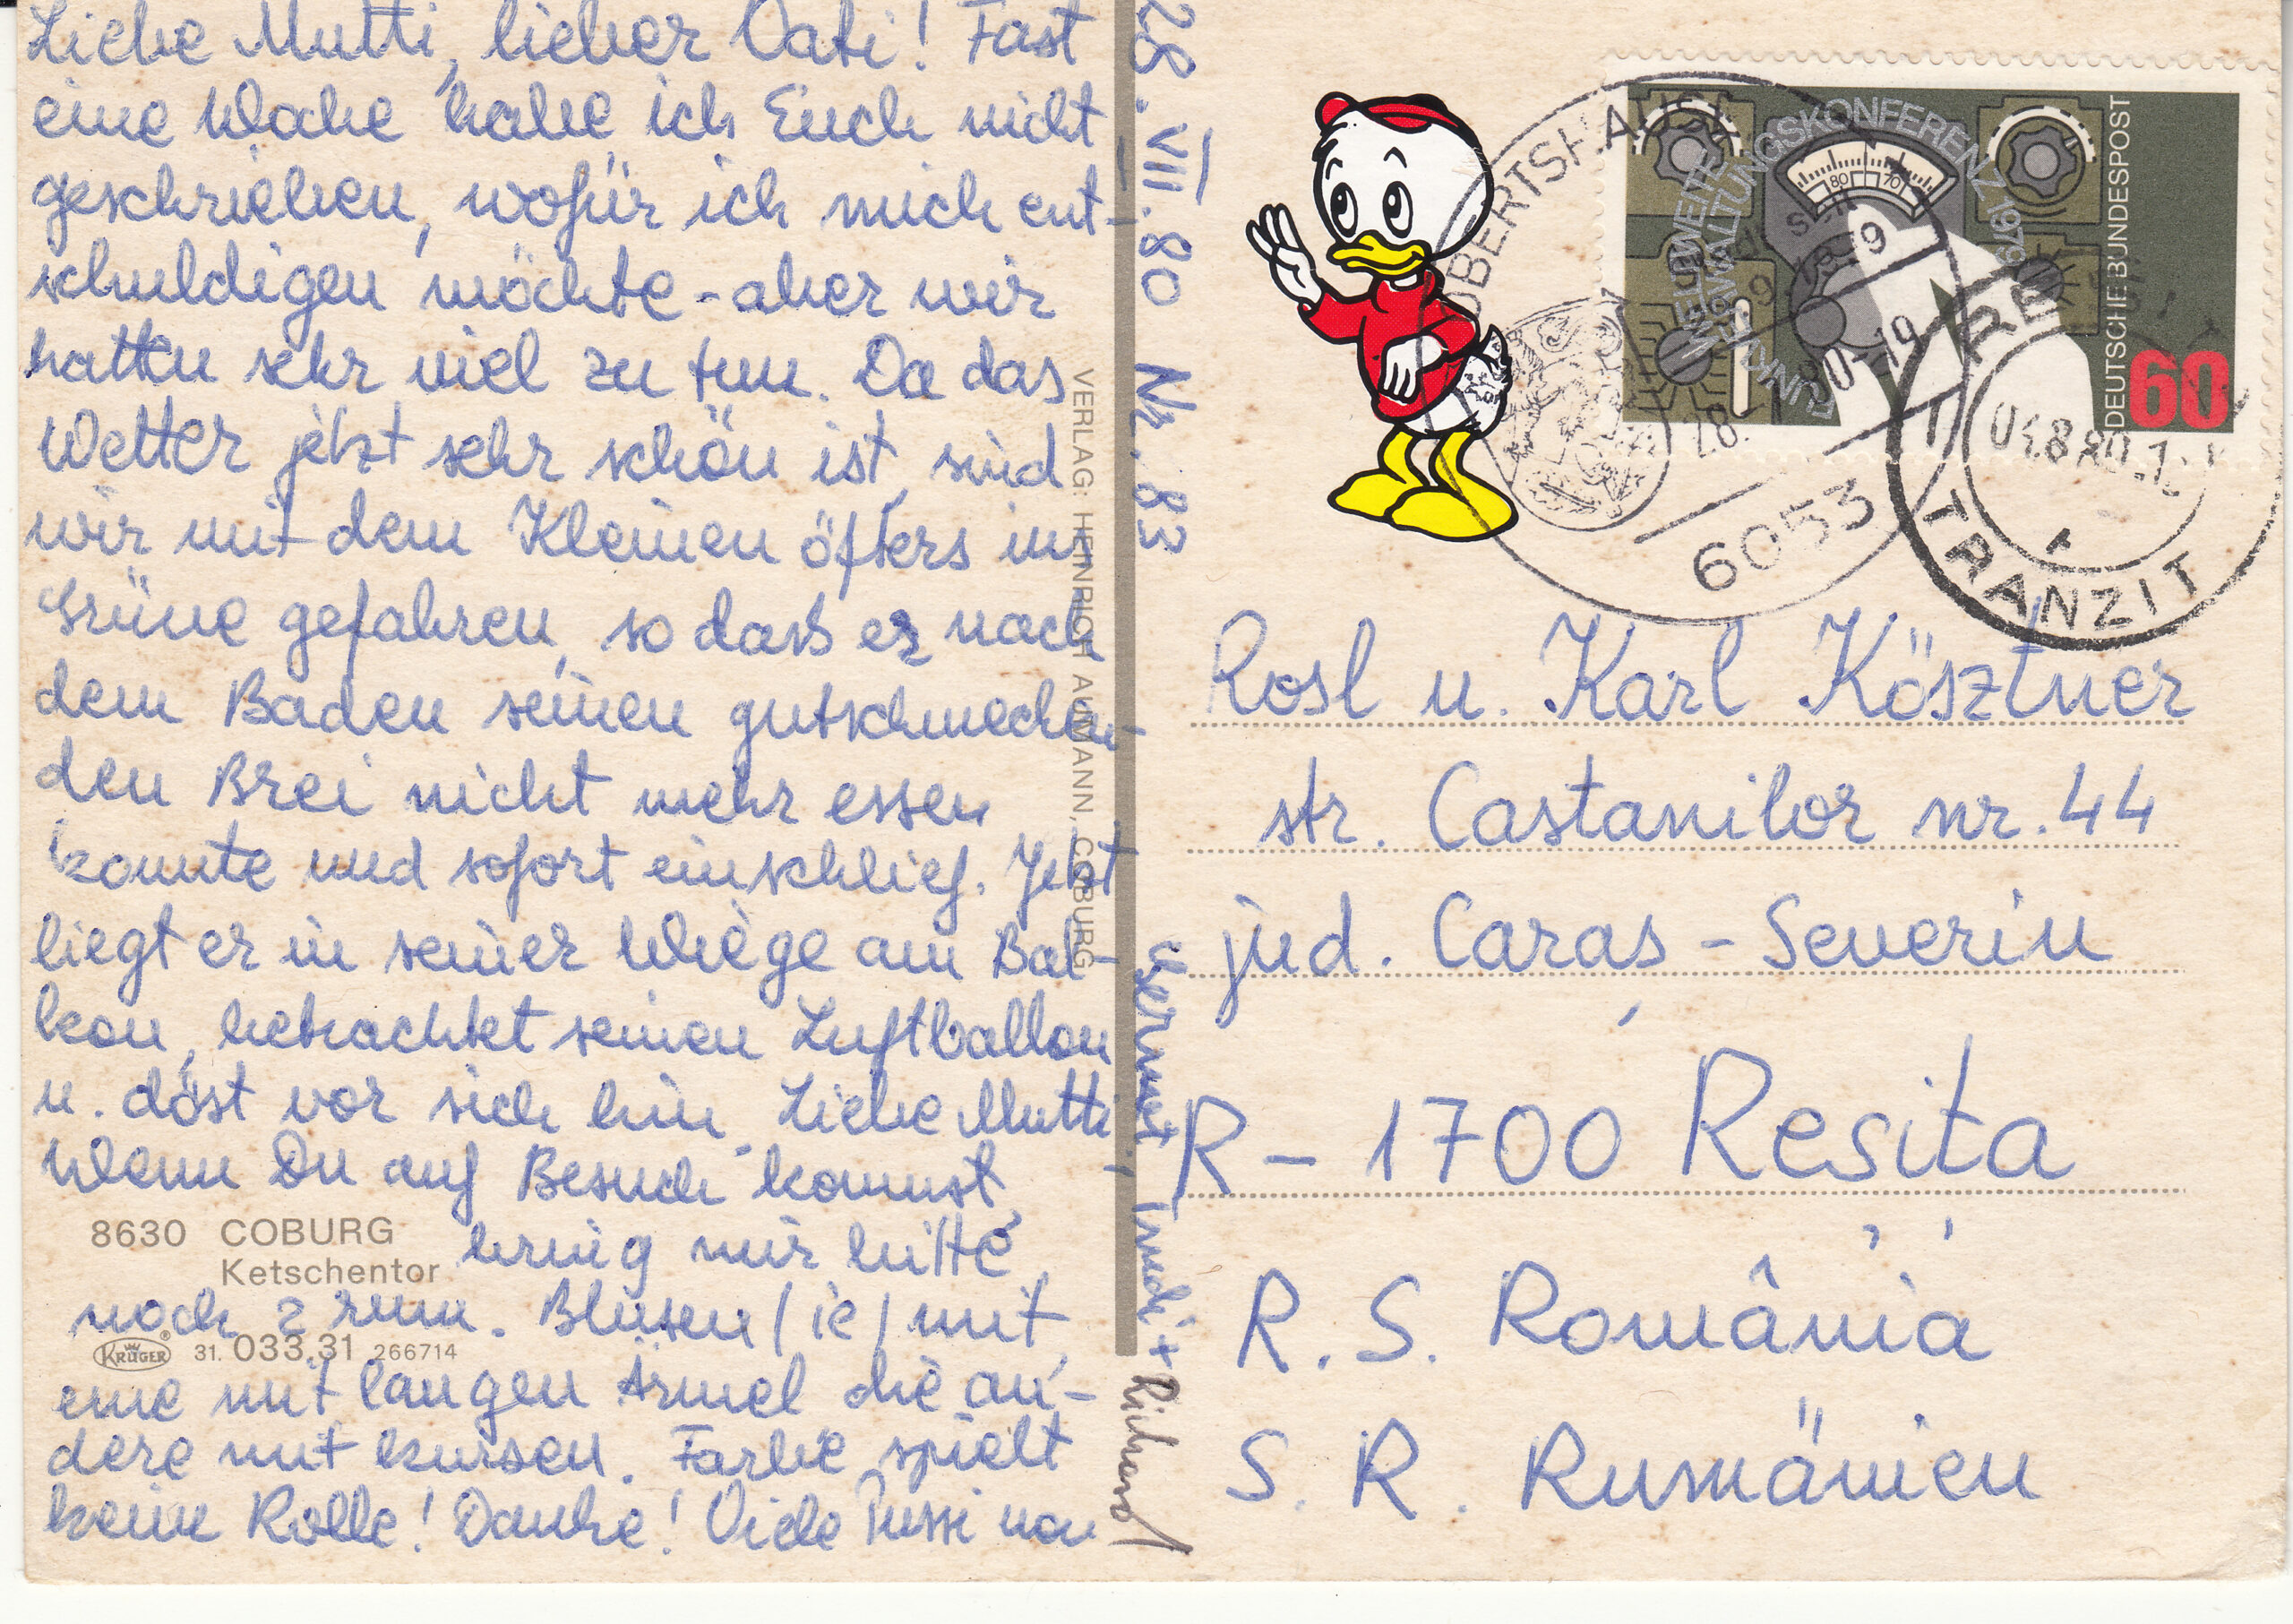 Liebe Mutti, lieber Vati! Fast
eine Woche habe ich Euch nicht
geschrieben, wofür ich mich ent-
schuldigen möchte - aber wir
hatten sehr viel zu tun. Da das
Wetter jetzt sehr schön ist, sind
wir mit dem Kleinen öfters ins
Grüne gefahren, so dass er nach
dem Baden seinen gutschmecken-
den Brei nicht mehr essen
konnte und sofort einschlief. Jetzt
liegt er in seiner Wiege am Bal-
kon, betrachtet seinen Luftballon
u. döst vor sich hin. Liebe Mutti,
wenn Du auf Besuch kommst,
bring mir bitte
noch 2 rum. Blusen (ie) mit
eine mit langen Ärmel die an-
dere mit kurzen. Farbe spielt
keine Rolle! Danke! Viele Pussi von
Gernot, Trudi + Richard
28. VII. 80 Nr. 83
8630 COBURG
Ketschentor
KRÜGER® 31. 033.31 266714
VERLAG: HEINRICH AUMANN, COBURG
FUNKVERWALTUNGSKONFERENZ 1979
WELTWEITE
80 70
DEUTSCHE BUNDESPOST
60
OBERTSHAUSEN
6053
TRANZIT
Rosl u. Karl Kösztner
str. Castanilor nr. 44
jud. Caraș - Severin
R - 1700 Reșița
R. S. România
S. R. Rumänien